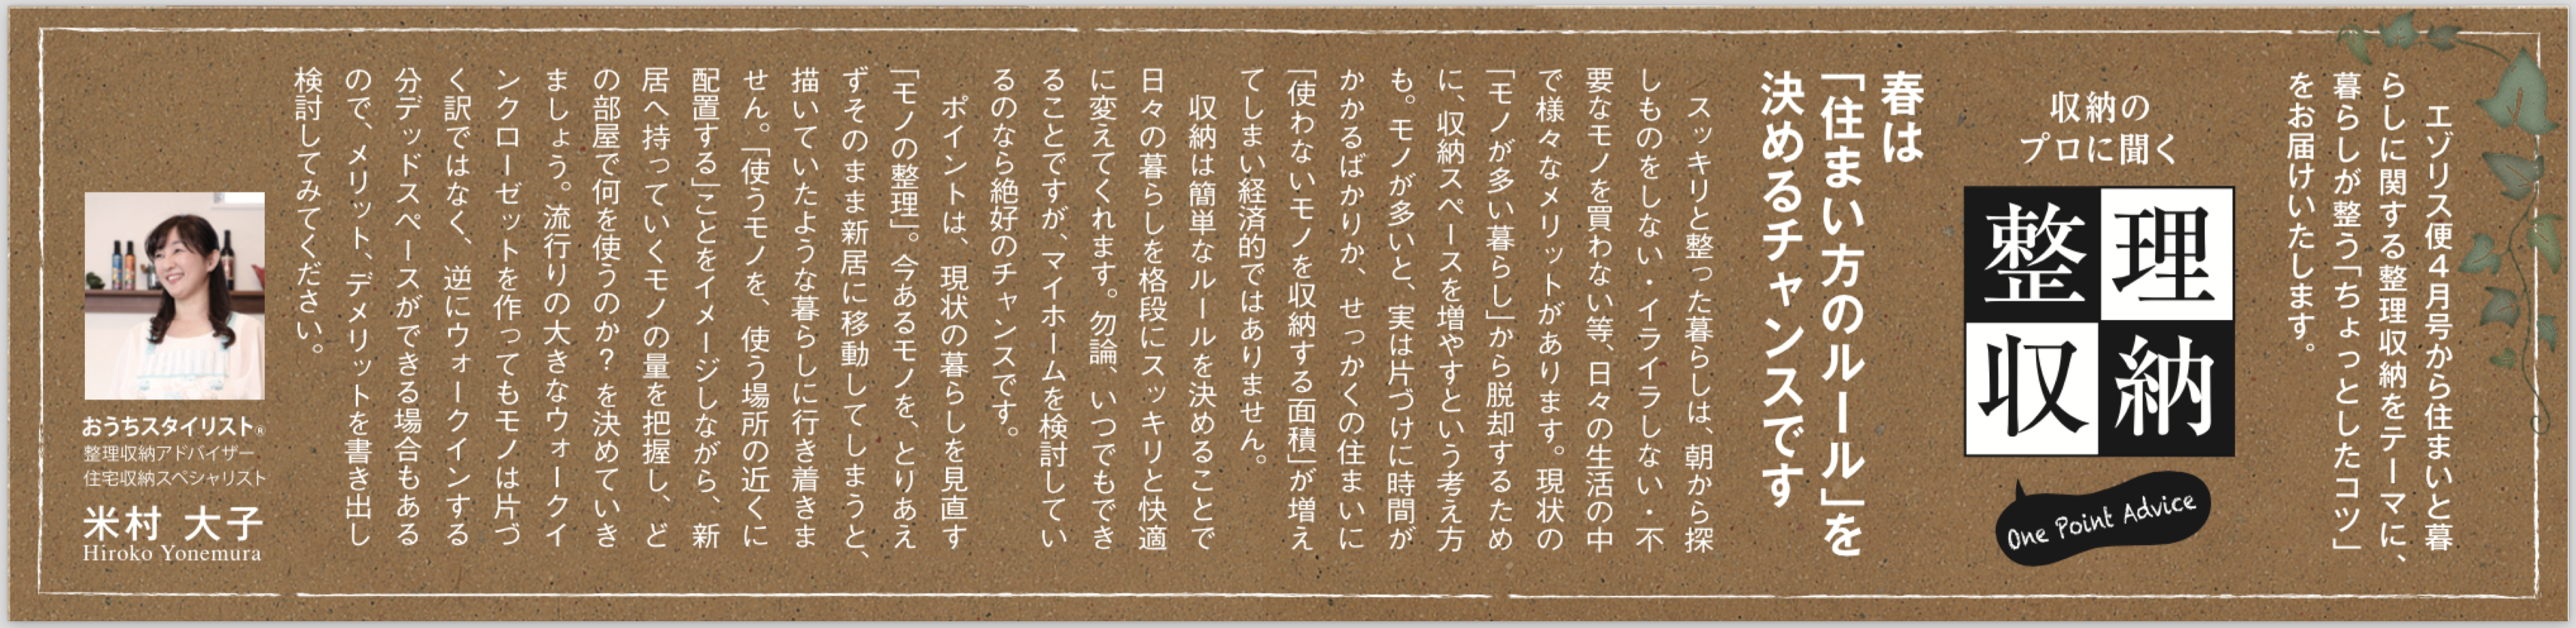 エゾリス便４月号から住まいと暮
らしに関する整理収納をテーマに、
暮らしが整う「ちょっとしたコツ」
をお届けいたします。
収納の
プロに聞く
整理
収納
One Point Advice
春は
「住まい方のルール」を
決めるチャンスです
スッキリと整った暮らしは、朝から探
しものをしない・イライラしない・不
要なモノを買わない等、日々の生活の中
で様々なメリットがあります。現状の
「モノが多い暮らし」から脱却するため
に、収納スペースを増やすという考え方
も。モノが多いと、実は片づけに時間が
かかるばかりか、せっかくの住まいに
「使わないモノを収納する面積」が増え
てしまい経済的ではありません。
収納は簡単なルールを決めることで
日々の暮らしを格段にスッキリと快適
に変えてくれます。勿論、いつでもでき
ることですが、マイホームを検討してい
るのなら絶好のチャンスです。
ポイントは、現状の暮らしを見直す
「モノの整理」。今あるモノを、とりあえ
ずそのまま新居に移動してしまうと、
描いていたような暮らしに行き着きま
せん。「使うモノを、使う場所の近くに
配置する」ことをイメージしながら、新
居へ持っていくモノの量を把握し、ど
の部屋で何を使うのか？を決めていき
ましょう。流行りの大きなウォークイ
ンクローゼットを作ってもモノは片づ
く訳ではなく、逆にウォークインする
分デッドスペースができる場合もある
ので、メリット、デメリットを書き出し
検討してみてください。
おうちスタイリスト®
整理収納アドバイザー
住宅収納スペシャリスト
米村 大子
Hiroko Yonemura